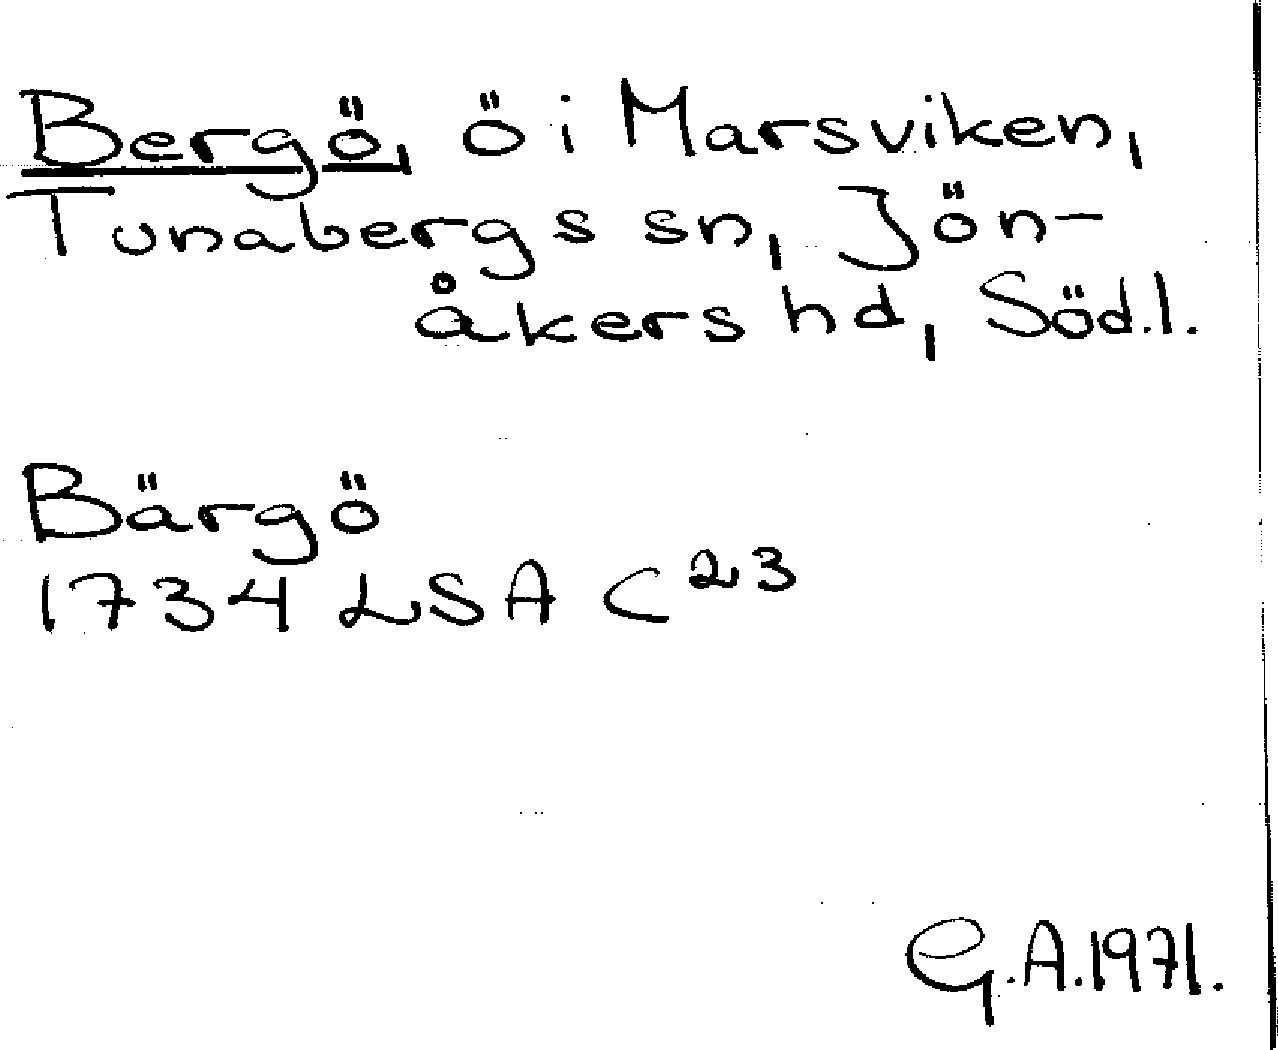 Bergö, ö i Marsviken,
Tunabergs sn, Jön-
åkers hd, Södl.
Bärgö
1734 LSA C²³
G.A.1971.